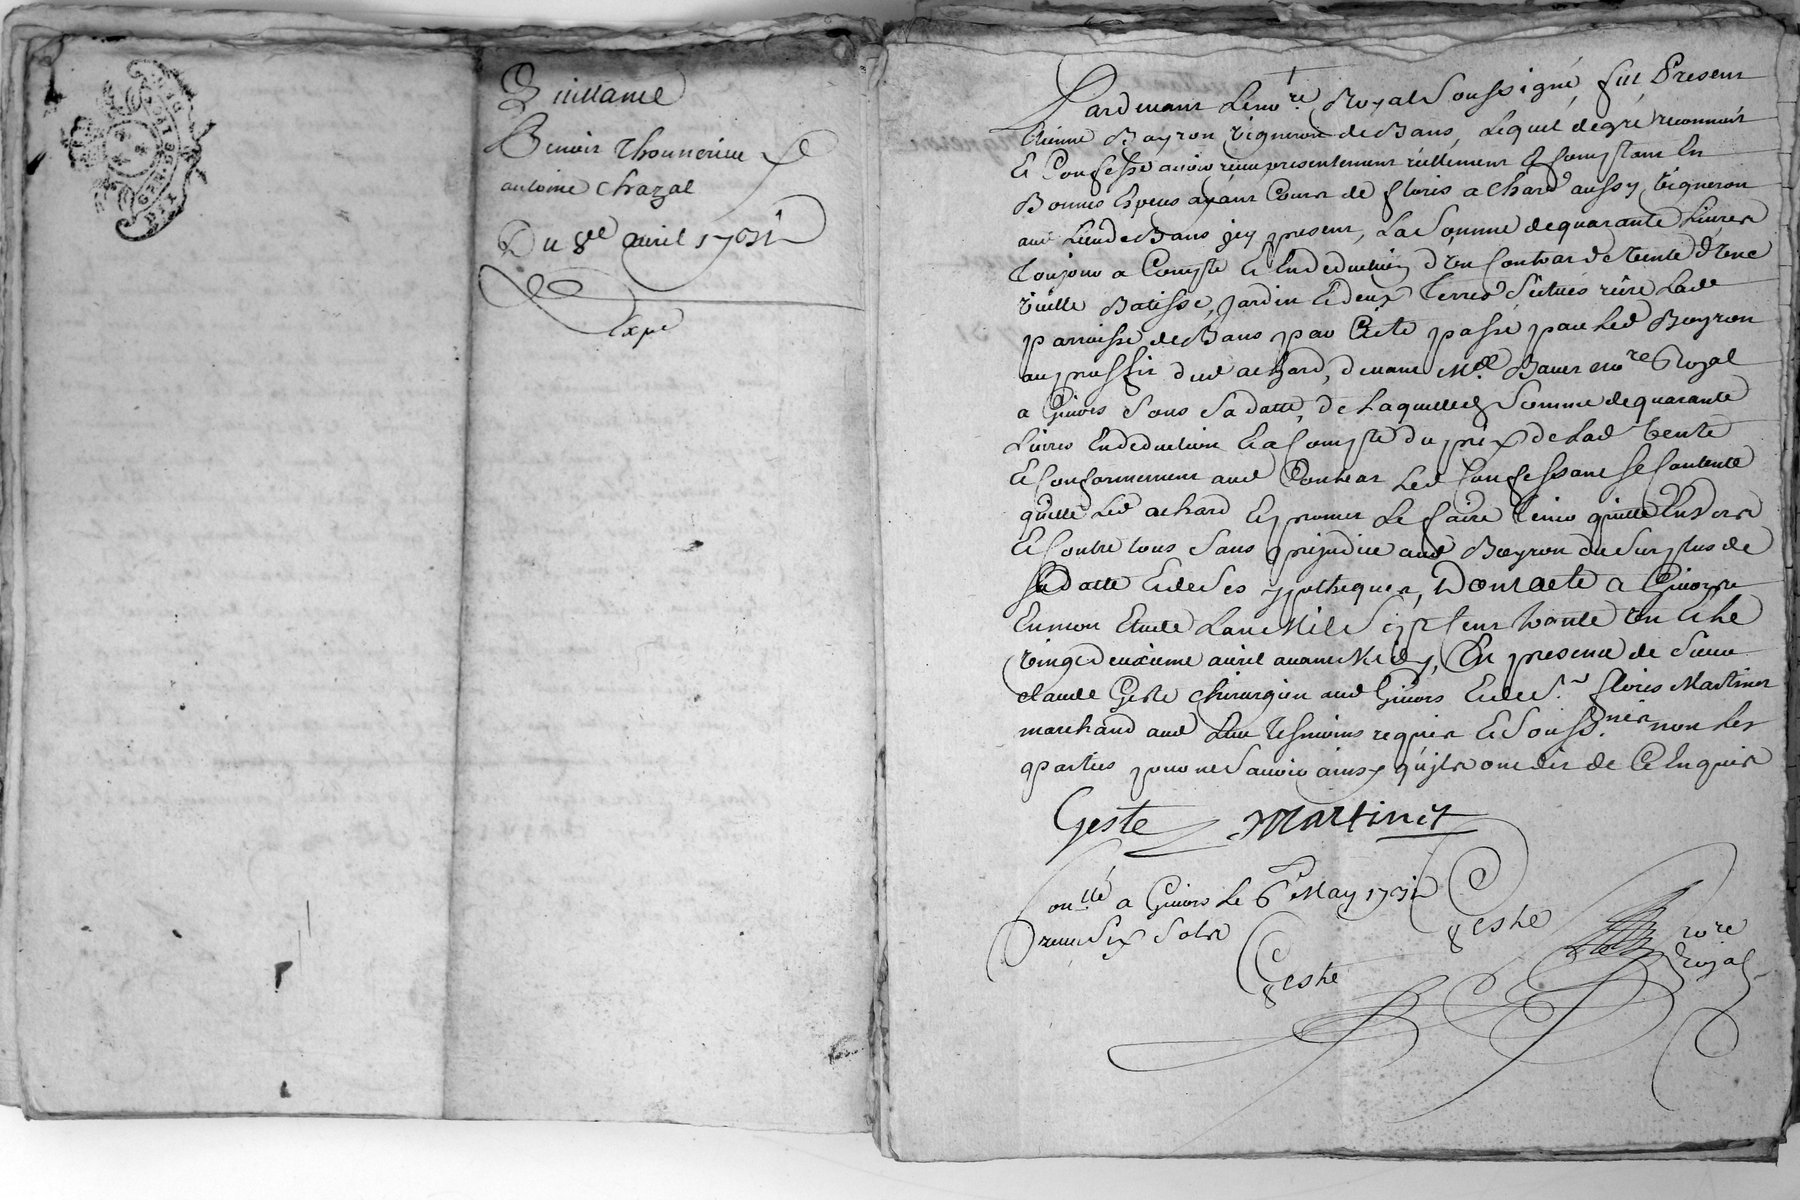 Quittance
Benoist Thonnerieu
antoine chazal
Du 8e avril 1731
Expé
Pardevant Le no.re Royal Soussigné, fut Present
Etienne Bayron vigneron de Bans, Lequel de gré reconnoit
Et Confesse avoir reçu presentement réellement & Comptant En
Bonnes Especes ayant Cours de floris achard aussy vigneron
aud Lieu de Bans icy present, La Somme de quarante Livres
Toujour a Compte Et En deduction d'un Contrat de vente d'une
vieille Batisse, jardin Et deux Terres Situés riere Lade
parroisse de Bans par Acte passé par Led Bayron
au proffit dud achard, devant Me. Baver no.re Royal
a Givors Sous Sa datte, de Laquelle Somme de quarante
Livres En deduction Et a Compte du prix de Lad vente
Et Conformement aud Contrat Led Confessant Se Contente
quitte Led achard Et promet Le faire tenir quitte Envers
Et Contre tous Sans préjudice aud Bayron du Surplus de
Sa datte Et de Ses ypotheques, Dont acte a Givors
En mon Etude L'an Mil Sept Cent trente un Et Le
vingt deuxieme avril avant Midy, En presence de Sieur
claude Geste chirurgien aud Givors Et de S.r floris Martinet
marchand aud Lieu Tesmoins requis Et Souss.nés non Les
parties pour ne Savoir ainsy qu'ils ont dit de Ce Enquis
Geste Martinet
Con.llé a Givors Le 6e May 1731
reçu Six Sols
Geste
Geste
no.re
Royal